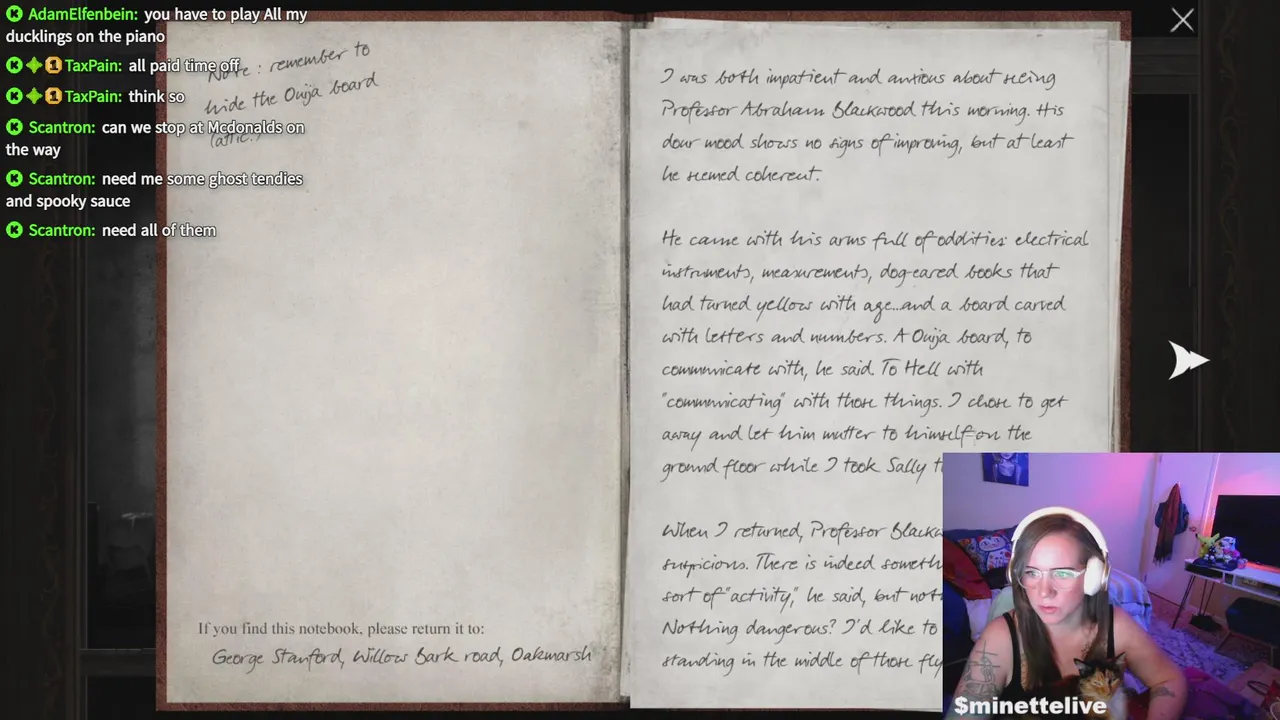 AdamElfenbein: you have to play All my
ducklings on the piano
TaxPain: all paid time off
TaxPain: think so
Scantron: can we stop at Mcdonalds on
the way
Scantron: need me some ghost tendies
and spooky sauce
Scantron: need all of them
Note: remember to
hide the Ouija board
(attic.)
If you find this notebook, please return it to:
George Stanford, Willow Bark road, Oakmarsh
I was both impatient and anxious about seeing
Professor Abraham Blackwood this morning. His
dour mood shows no signs of improving, but at least
he seemed coherent.
He came with his arms full of oddities: electrical
instruments, measurements, dog-eared books that
had turned yellow with age...and a board carved
with letters and numbers. A Ouija board, to
communicate with, he said. To Hell with
"communicating" with those things. I chose to get
away and let him mutter to himself on the
ground floor while I took Sally
When I returned, Professor
suspicious. There is indeed
sort of "activity," he said, but
Nothing dangerous? I'd like to
standing in the middle of those
$minettelive